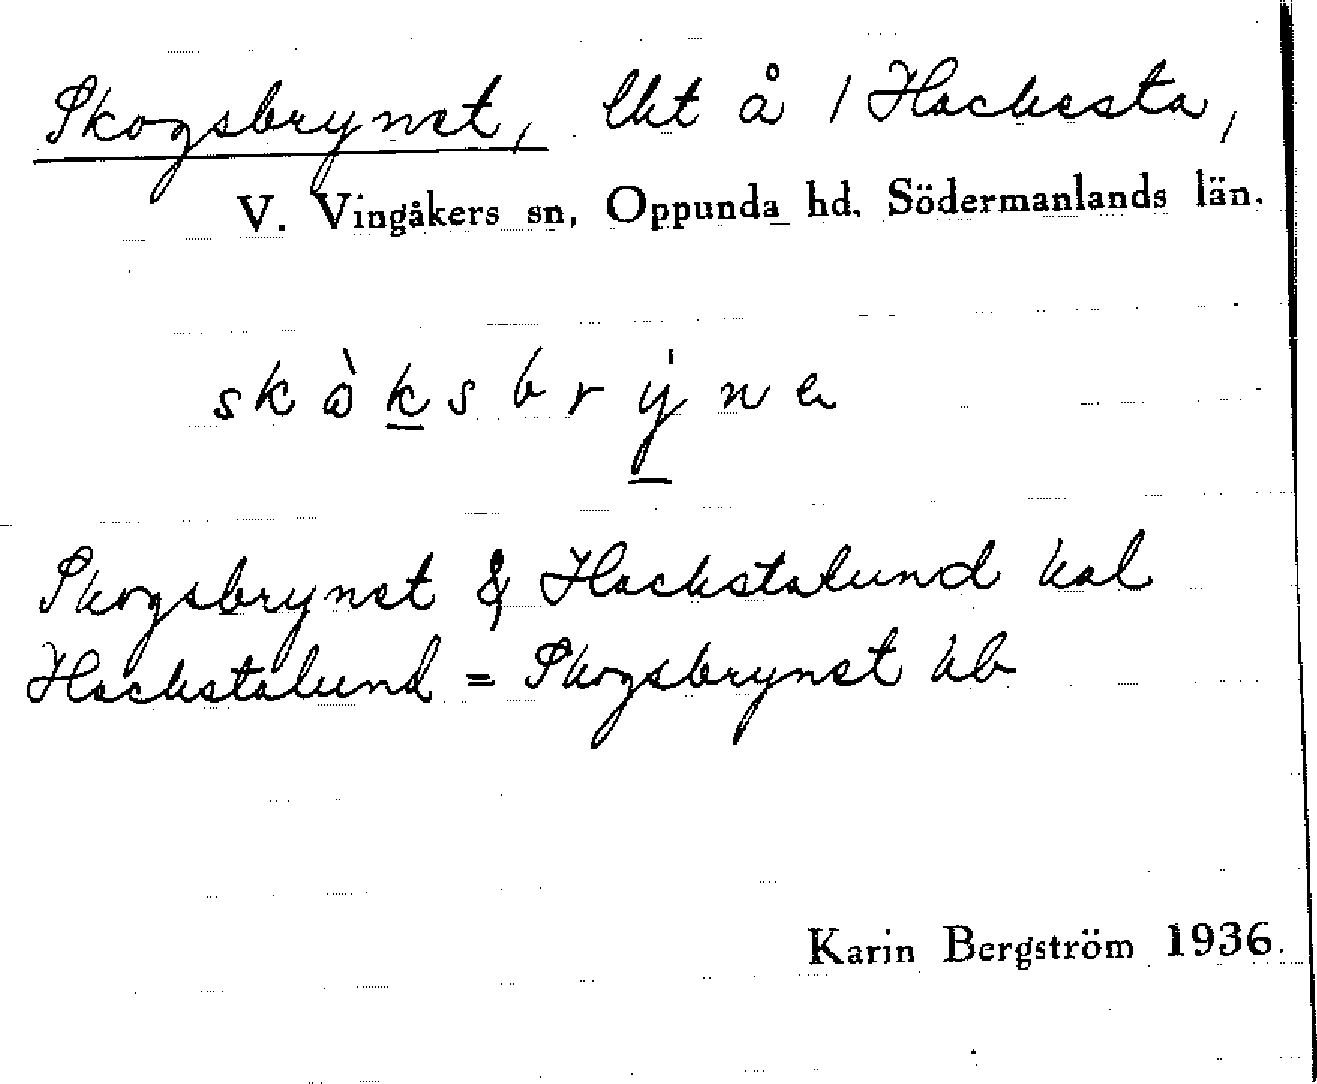 Skogsbrynet, lht å 1 Hackesta,
V. Vingåkers sn, Oppunda hd. Södermanlands län.
skòksbrýne
Skogsbrynet & Hackstalund kal
Hackstalund = Skogsbrynet kb
Karin Bergström 1936.